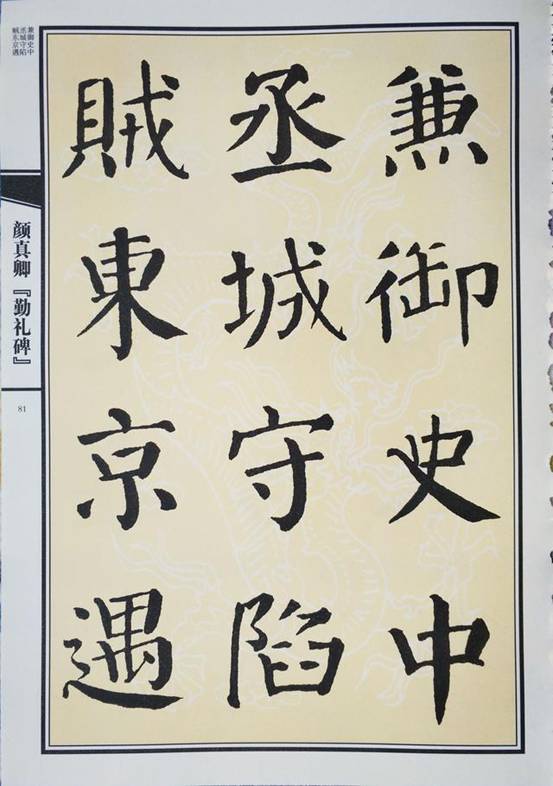 兼御史中
丞城守陷
賊東京遇
兼御史中
丞城守陷
贼东京遇
颜真卿『勤礼碑』
81